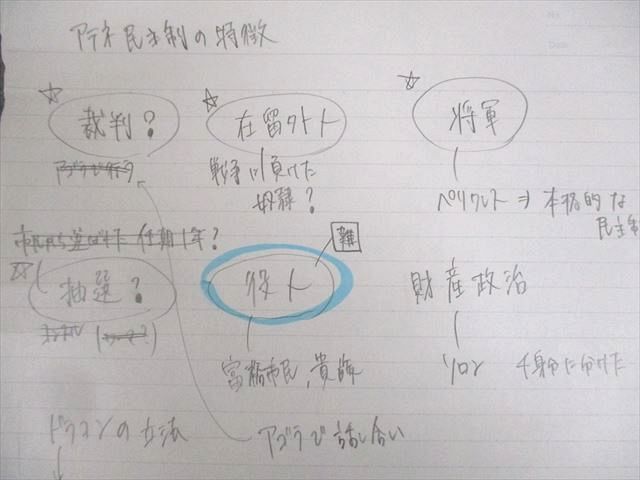 アテネ民主制の特徴
☆ 裁判?
☆ 在留外人
☆ 将軍
戦争に負けた
奴隷?
ペリクレス ⇒ 本格的な
民主制
任期1年?
抽選?
役人
難
財産政治
富裕市民, 貴族
ソロン
4身分に分けた
ドラコンの立法
アゴラで話し合い